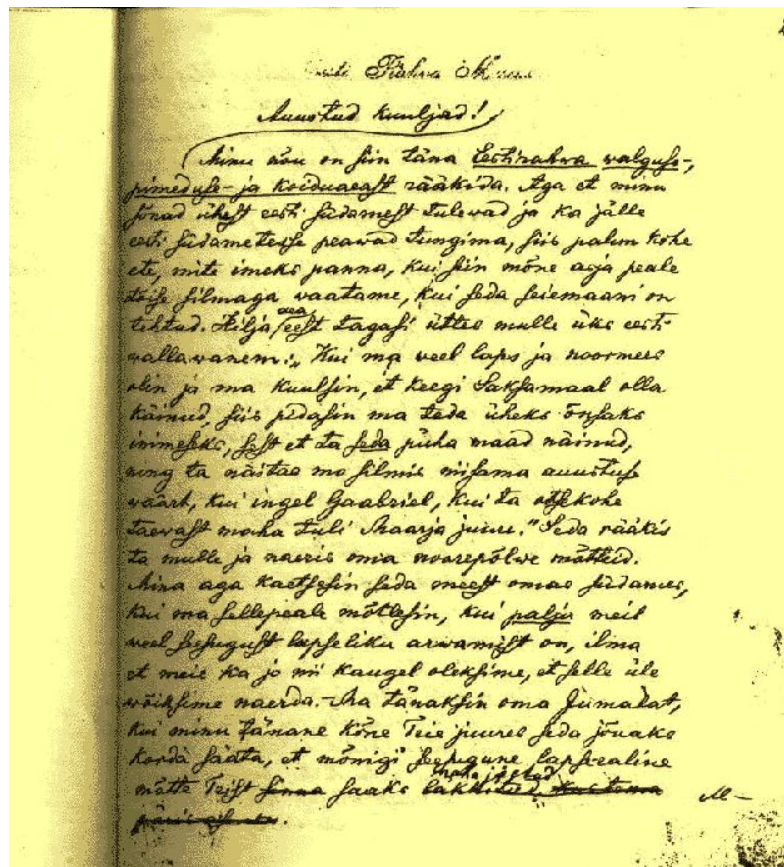 Auustud kuuljad!
Minu nõu on siin täna Eesti rahwa walguse-,
pimeduse- ja koiduaeast rääkida. Aga et minu
sõnad ühest eesti südamest tulewad ja ka jälle
eesti südametesse peawad tungima, siis palun kohe
ete, mite imeks panna, kui siin mõne asja peale
töise silmaga waatame, kui seda seiemaani on
tehtud. Hilja aea eest tagasi ütles mulle üks eesti
wallawanem: „Kui ma weel laps ja noormees
olin ja ma kuulsin, et keegi Saksamaal olla
käinud, siis pidasin ma teda üheks õnsaks
inimeseks, sest et ta seda püha maad näinud,
ning ta näitas mo silmis niisama auustuse
wäärt, kui ingel Gaabriel, kui ta otsekohe
taewast maha tuli Maarja juure." Seda rääkis
ta mulle ja naeris oma noorepõlwe mõtteid.
Mina aga kaetsesin seda meest omas südames,
kui ma sellepeale mõtlesin, kui palju meil
weel seesugust lapseliku arwamist on, ilma
et meie ka jo nii kaugel oleksime, et selle üle
wõiksime naerda. - Ma tänaksin oma Jumalat,
kui minu tänane kõne Teie juures seda jõuaks
korda saata, et mõnigi seesugune lapsealine
mõtte Teist sinna saaks
M-